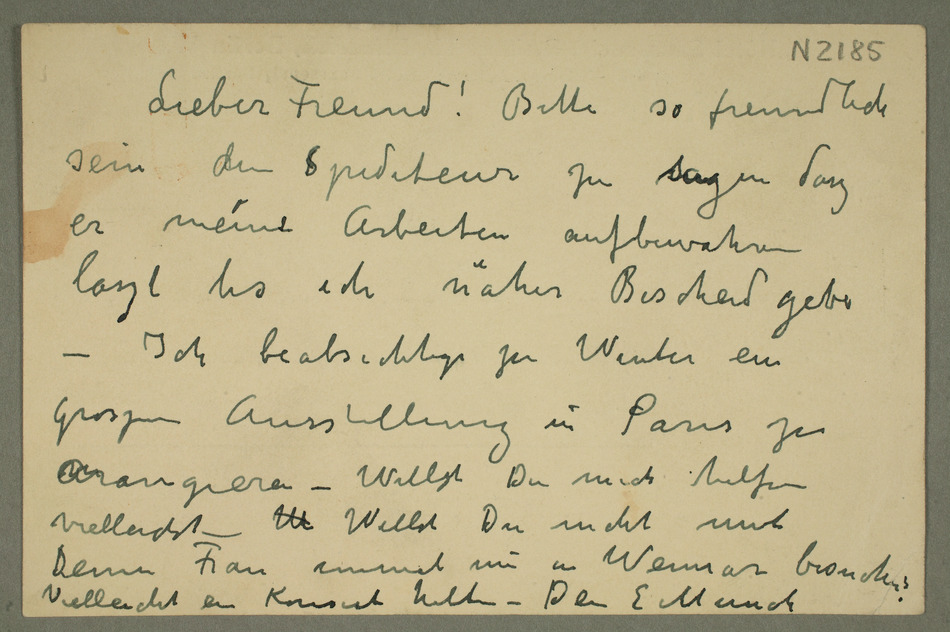 N2185
Lieber Freund! Bitte so freundlich
sein den Spediteur zu sagen dasz
er meine Arbeiten aufbewahren
laszt bis ich näher Bescheid gebe
– Ich beabsichtige zu Winter ein
groszen Ausstellung in Paris zu
arangieren – Willst Du mich helfen
vielleicht – Willst Du nicht mit
Deine Frau einmal mir in Weimar besuchen?
Vielleicht ein Konsert halten – Dein E Munch